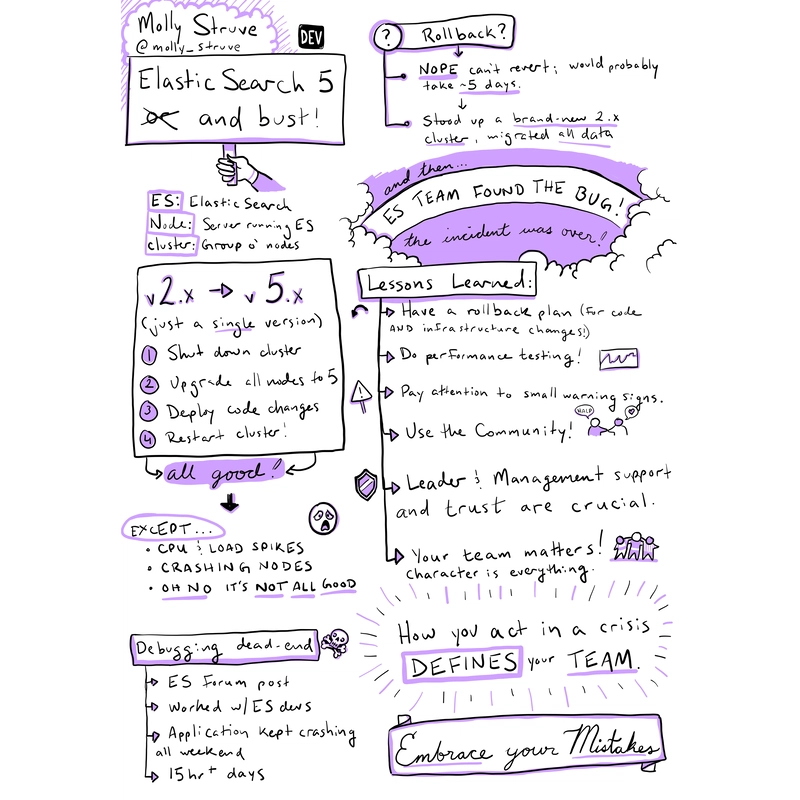 Molly Struve
@molly_struve
DEV
Elastic Search 5
or and bust!
ES: Elastic Search
Node: Server running ES
cluster: Group o' nodes
v2.x → v 5.x
(just a single version)
1 Shut down cluster
2 Upgrade all nodes to 5
3 Deploy code changes
4 Restart cluster!
all good!
EXCEPT...
• CPU & LOAD SPIKES
• CRASHING NODES
• OH NO IT'S NOT ALL GOOD
Debugging dead-end
ES Forum post
Worked w/ ES devs
Application kept crashing
all weekend
15hr+ days
? Rollback?
NOPE can't revert; would probably
take ~5 days.
Stood up a brand-new 2.x
cluster, migrated all data
and then...
ES TEAM FOUND THE BUG!
the incident was over!
Lessons Learned:
Have a rollback plan (for code
AND infrastructure changes!)
Do performance testing!
Pay attention to small warning signs.
HALP
Use the Community!
Leader & Management support
and trust are crucial.
Your team matters!
character is everything.
How you act in a crisis
DEFINES your TEAM.
Embrace your Mistakes